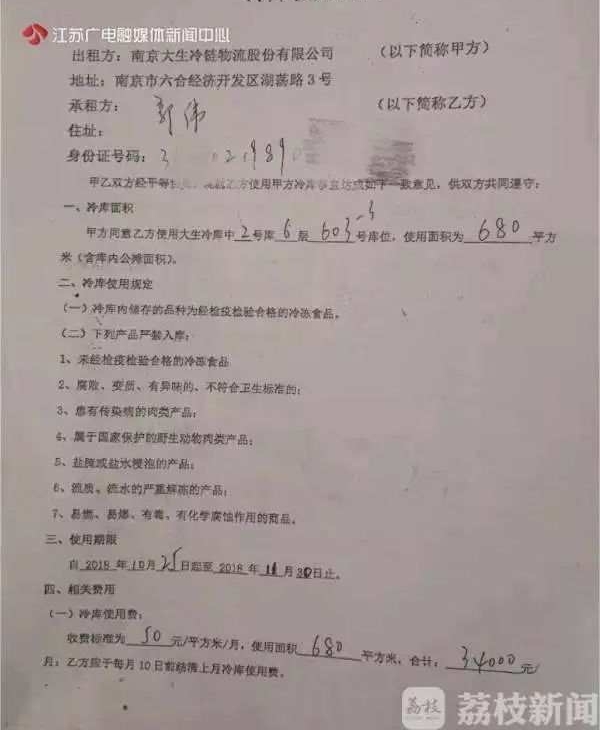 江苏广电融媒体新闻中心
出租方：南京大生冷链物流股份有限公司 （以下简称甲方）
地址：南京市六合经济开发区湖荡路3号
承租方： 郭伟 （以下简称乙方）
住址：
身份证号码：3 021989
甲乙双方经平等 乙方使用甲方冷库事宜达成如下一致意见，供双方共同遵守：
一、冷库面积
甲方同意乙方使用大生冷库中 2 号库 6 层 603-3 号库位，使用面积为 680 平方
米（含库内公摊面积）。
二、冷库使用规定
（一）冷库内储存的品种为经检疫检验合格的冷冻食品。
（二）下列产品严禁入库：
1、未经检疫检验合格的冷冻食品
2、腐败、变质、有异味的、不符合卫生标准的；
3、患有传染病的肉类产品；
4、属于国家保护的野生动物肉类产品；
5、盐腌或盐水浸泡的产品；
6、流质、流水的严重解冻的产品；
7、易燃、易爆、有毒、有化学腐蚀作用的商品。
三、使用期限
自 2018 年 10 月 25 日起至 2018 年 11 月 30 日止。
四、相关费用
（一）冷库使用费：
收费标准为 50 元/平方米/月，使用面积 680 平方米，合计： 34000 元/
月；乙方应于每月10日前结清上月冷库使用费。
荔枝 荔枝新闻